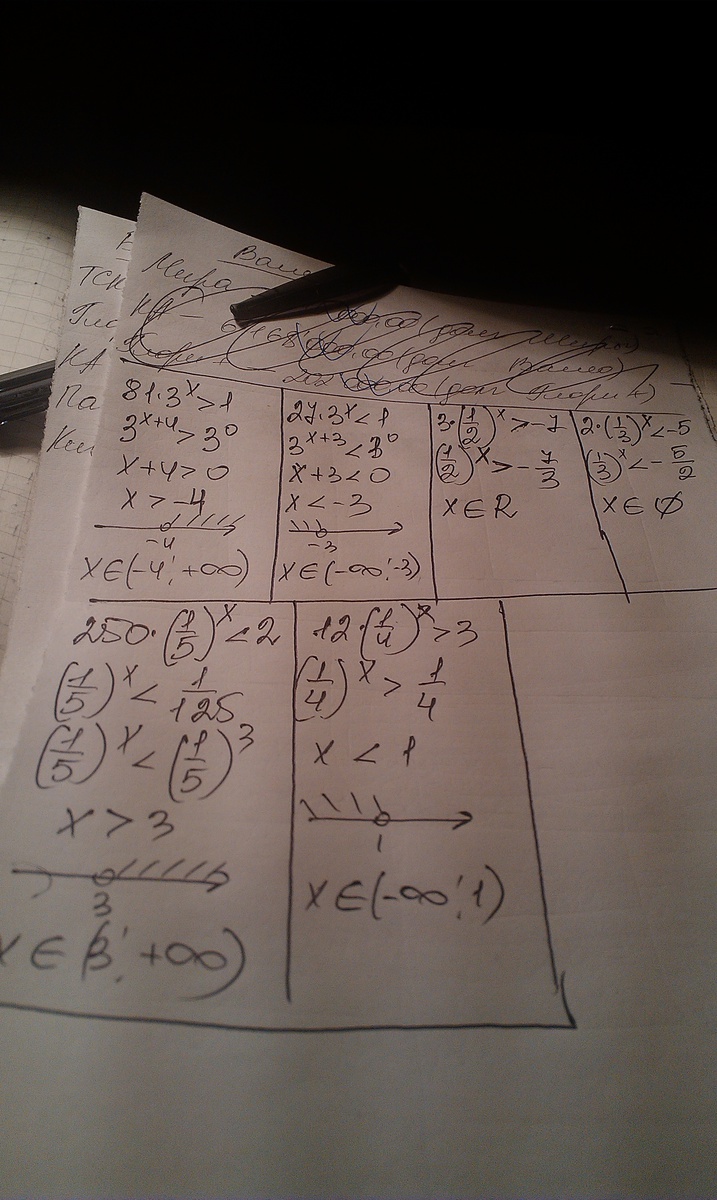 Мира
81·3^x>1
3^(x+4)>3^0
x+4>0
x>-4
-4
x∈(-4; +∞)
27·3^x<1
3^(x+3)<3^0
x+3<0
x<-3
-3
x∈(-∞;-3)
3·(1/2)^x>-7
(1/2)^x>-7/3
x∈R
2·(1/3)^x<-5
(1/3)^x<-5/2
x∈∅
250·(1/5)^x<2
(1/5)^x<1/125
(1/5)^x<(1/5)^3
x>3
3
x∈(3; +∞)
12·(1/4)^x>3
(1/4)^x>1/4
x<1
1
x∈(-∞;1)